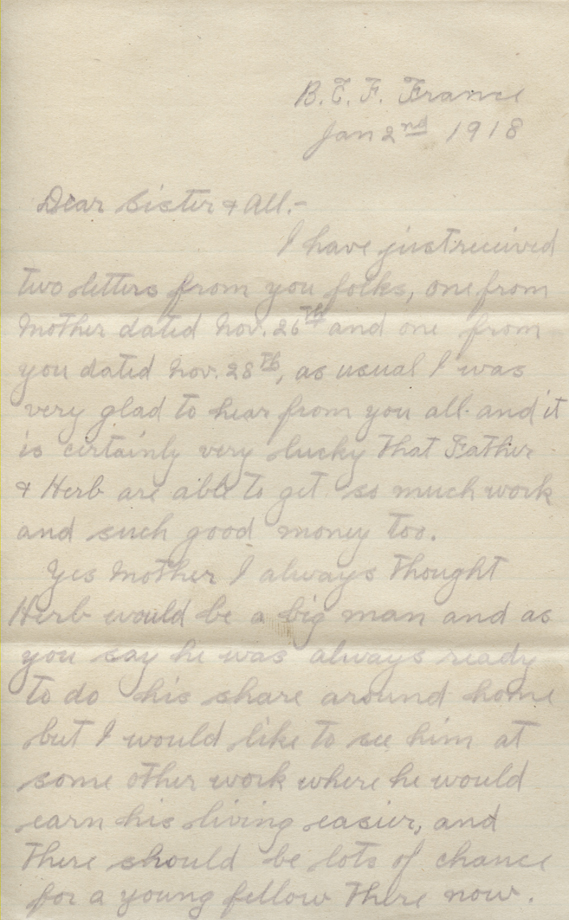 B.E.F. France
Jan 2nd 1918
Dear Sister & All:-
I have just recieved
two letters from you folks, one from
Mother dated Nov. 26th and one from
you dated Nov. 28th, as usual I was
very glad to hear from you all and it
is certainly very lucky that Father
& Herb are able to get so much work
and such good money too.
Yes Mother I always thought
Herb would be a big man and as
you say he was always ready
to do his share around home
but I would like to see him at
some other work where he would
earn his living easier, and
there should be lots of chance
for a young fellow there now.